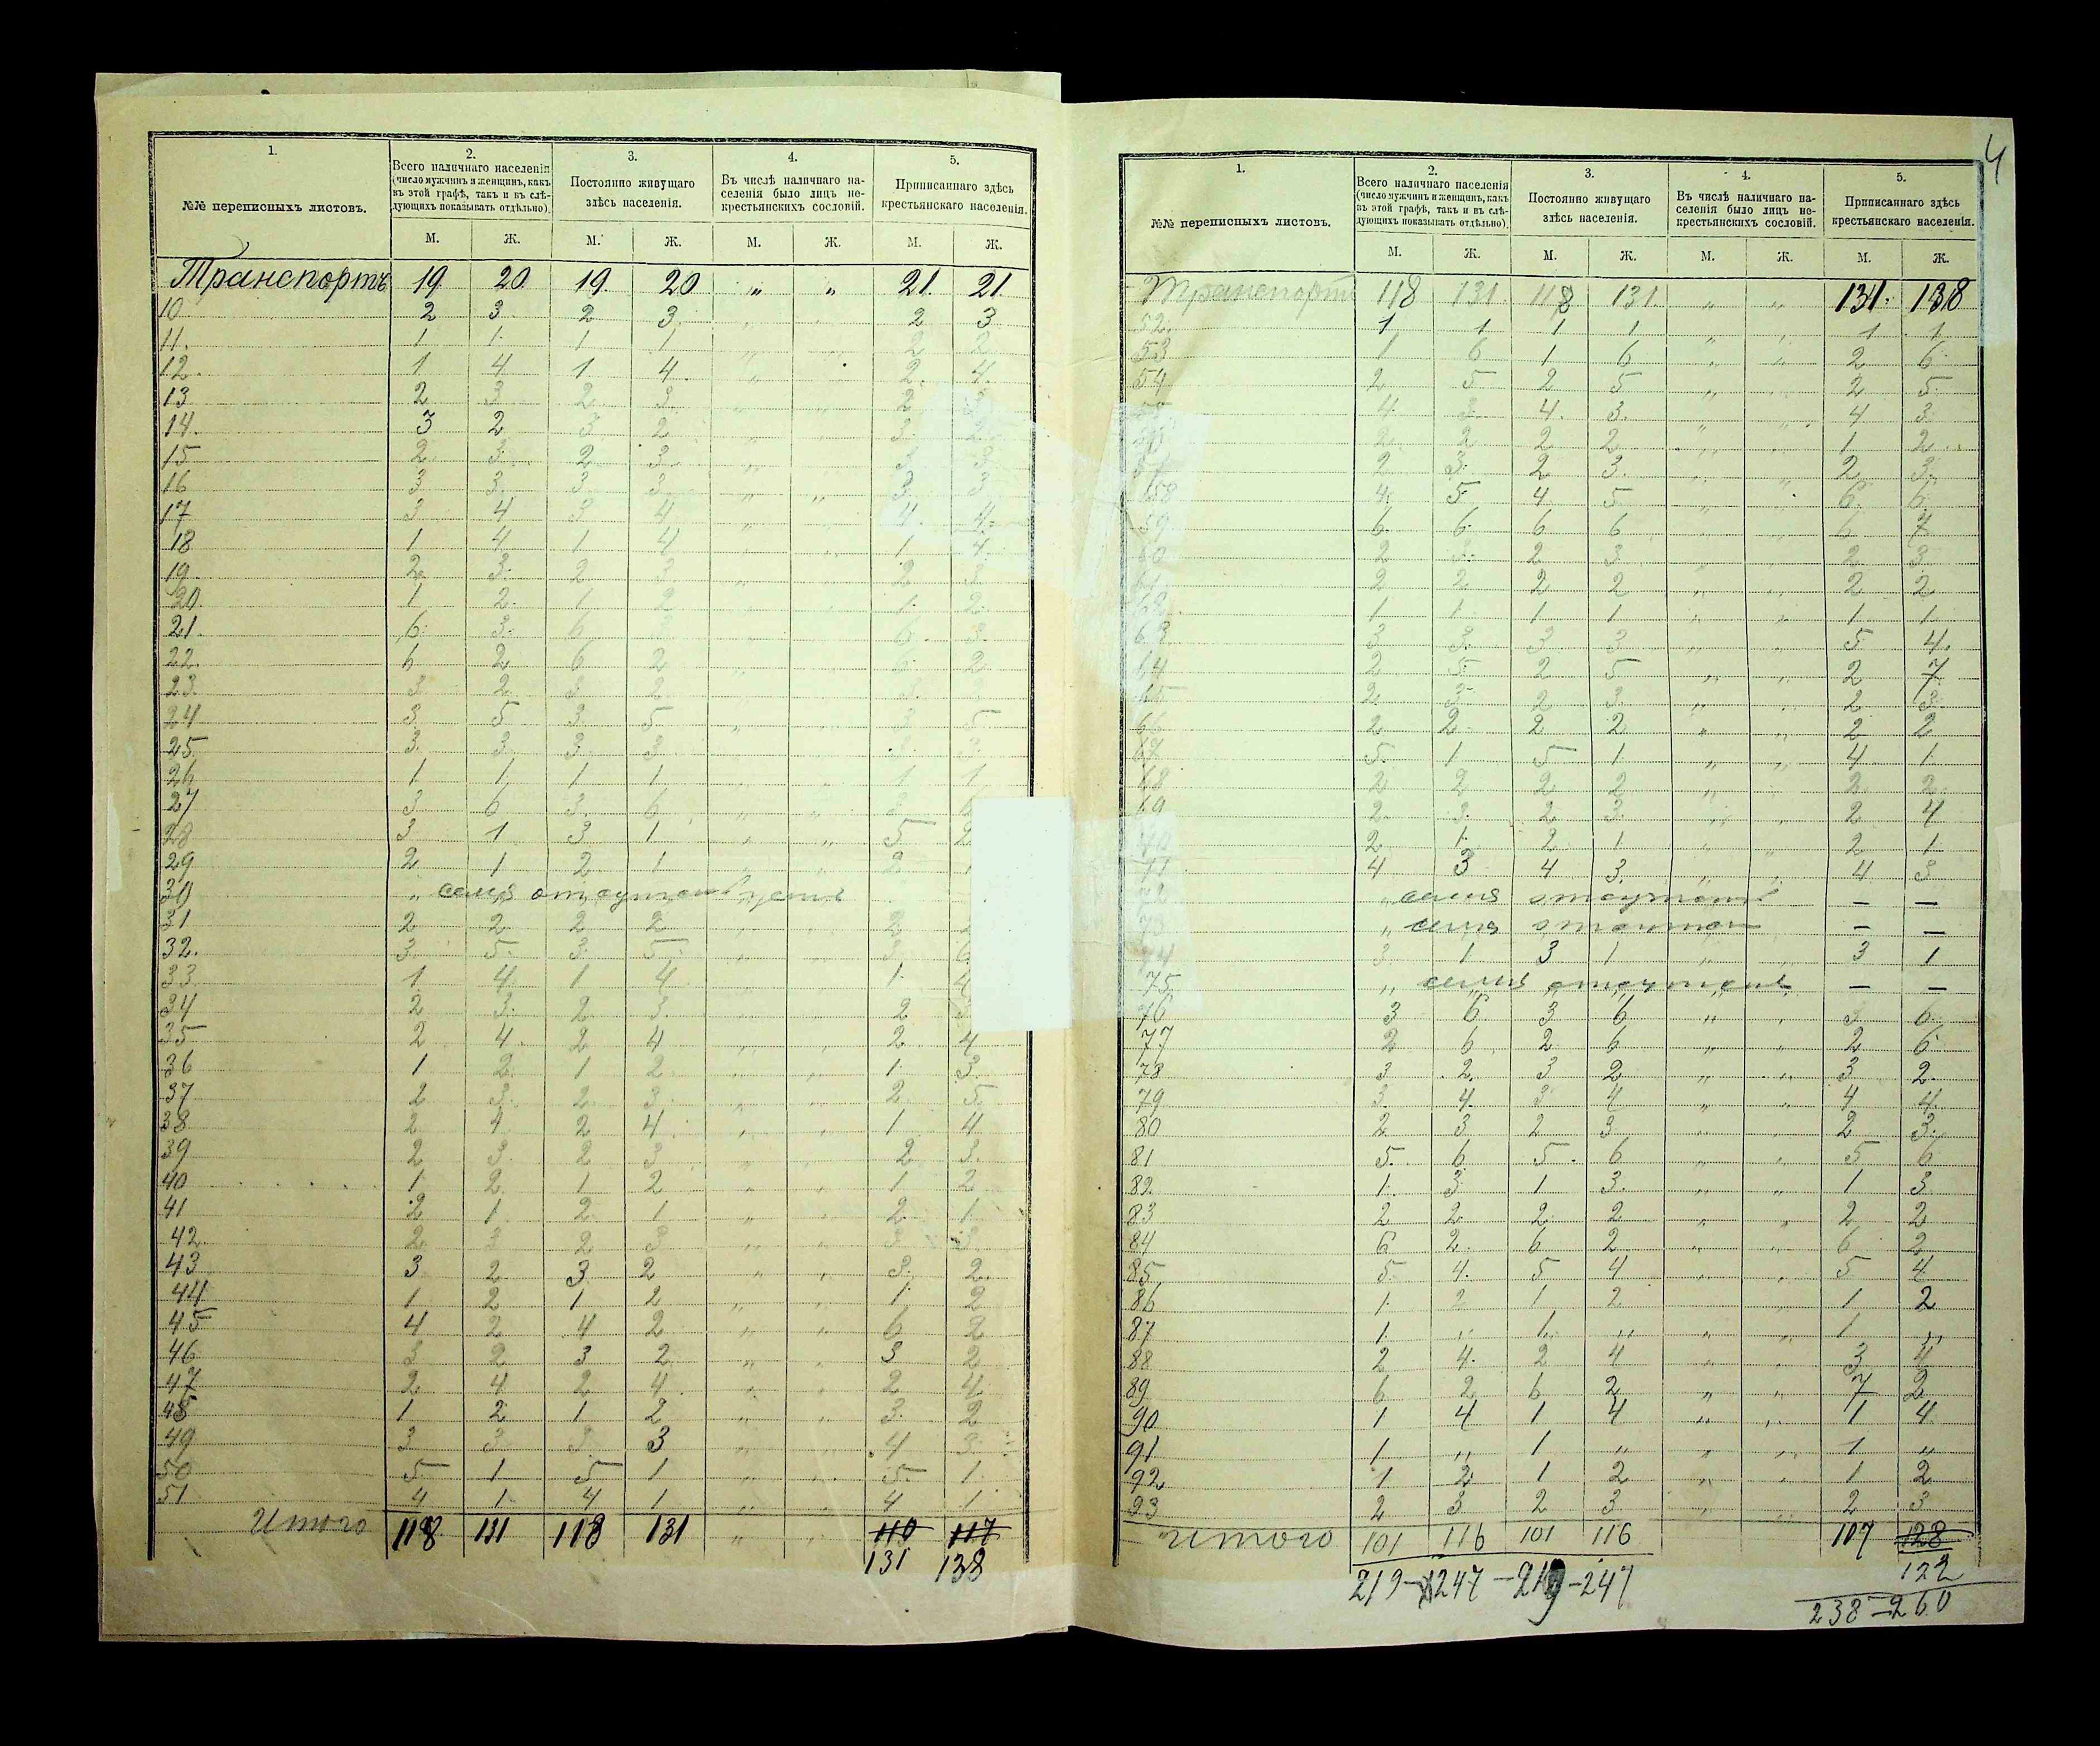 1. 2. 3. 4. 5.
№№ переписныхъ листовъ.
Всего наличнаго населенія (число мужчинъ и женщинъ, какъ въ этой графѣ, такъ и въ слѣдующихъ показывать отдѣльно).
Постоянно живущаго здѣсь населенія.
Въ числѣ наличнаго населенія было лицъ некрестьянскихъ сословій.
Приписаннаго здѣсь крестьянскаго населенія.
М. Ж. М. Ж. М. Ж. М. Ж.
Транспортъ 19 20 19 20 „ „ 21 21
10 2 3 2 3 „ „ 2 3
11. 1 1 1 1 „ „ 2 2
12. 1 4 1 4 „ „ 2 4
13 2 3 2 3 „ „ 2 3
14. 3 2 3 2 „ „ 3 2
15 2 3 2 3 „ „ 3 3
16 3 3 3 3 „ „ 3 3
17 3 4 3 4 „ „ 4 4
18 1 4 1 4 „ „ 1 4
19 2 3 2 3 „ „ 2 3
20. 1 2 1 2 „ „ 1 2
21. 6 3 6 „ „ 6 3
22. 6 2 6 2 „ „ 6 2
23. 3 2 3 2 „ „ 3
24 3 5 3 5 „ „ 3 5
25 3 3 3 3 „ „ 3 3
26 1 1 1 1 „ „ 1 1
27 3 6 3 6 „ „ 3 6
28 3 1 3 1 „ „ 5 2
29 2 1 2 1 „ „ 2 1
30 „ семья
31 2 2 2 2 „ „ 2
32. 3 5 3 5 „ „ 3 6
33 1 4 1 4 „ „ 1 4
34 2 3 2 3 „ „ 2 3
35 2 4 2 4 „ „ 2 4
36 1 2 1 2 „ „ 1 3
37 2 3 2 3 „ „ 2 5
38 2 4 2 4 „ „ 1 4
39 2 3 2 3 „ „ 2 3
40 1 2 1 2 „ „ 1 2
41 2 1 2 1 „ „ 2 1
42 2 3 2 3 „ „ 3 3
43 3 2 3 2 „ „ 3 2
44 1 2 1 2 „ „ 1 2
45 4 2 4 2 „ „ 6 2
46 3 2 3 2 „ „ 3 2
47 2 4 2 4 „ „ 2 4
48 1 2 1 2 „ „ 3 2
49 3 3 3 3 „ „ 4 3
50 5 1 5 1 „ „ 5 1
51 4 1 4 1 „ „ 4 1
Итого 118 131 118 131 „ „ 110 117
131 138
4
1. 2. 3. 4. 5.
№№ переписныхъ листовъ.
Всего наличнаго населенія (число мужчинъ и женщинъ, какъ въ этой графѣ, такъ и въ слѣдующихъ показывать отдѣльно).
Постоянно живущаго здѣсь населенія.
Въ числѣ наличнаго населенія было лицъ некрестьянскихъ сословій.
Приписаннаго здѣсь крестьянскаго населенія.
М. Ж. М. Ж. М. Ж. М. Ж.
Транспортъ 118 131 118 131 „ „ 131 138
52. 1 1 1 1 „ „ 1 1
53 1 6 1 6 „ „ 2 6
54 2 5 2 5 „ „ 2 5
55 4 3 4 3 „ „ 4 3
56 2 2 2 2 „ „ 1 2
57 2 3 2 3 „ „ 2 3
58 4 5 4 5 „ „ 6 6
59 6 6 6 6 „ „ 6 7
60 2 3 2 3 „ „ 2 3
61 2 2 2 2 „ „ 2 2
62 1 1 1 1 „ „ 1 1
63 3 3 3 3 „ „ 5 4
64 2 5 2 5 „ „ 2 7
65 2 3 2 3 „ „ 2 3
66 2 2 2 2 „ „ 2 2
67 5 1 5 1 „ „ 4 1
68 2 2 2 2 „ „ 2 2
69 2 3 2 3 „ „ 2 4
70 2 1 2 1 „ „ 2 1
71 4 3 4 3 „ „ 4 3
72 „ семья — —
73 „ семья — —
74 3 1 3 1 „ „ 3 1
75 „ семья — —
76 3 6 3 6 „ „ 3 6
77 2 6 2 6 „ „ 2 6
78 3 2 3 2 „ „ 3 2
79 3 4 3 4 „ „ 4 4
80 2 3 2 3 „ „ 2 3
81 5 6 5 6 „ „ 5 6
82 1 3 1 3 „ „ 1 3
83 2 2 2 2 „ „ 2 2
84 6 2 6 2 „ „ 6 2
85 5 4 5 4 „ „ 5 4
86 1 2 1 2 „ „ 1 2
87 1 „ 1 „ „ „ 1 „
88 2 4 2 4 „ „ 3 4
89 6 2 6 2 „ „ 7 2
90 1 4 1 4 „ „ 1 4
91 1 „ 1 „ „ „ 1 „
92 1 2 1 2 „ „ 1 2
93 2 3 2 3 „ „ 2 3
Итого 101 116 101 116 107 128
122
219 – 247 – 219 – 247
238 – 260